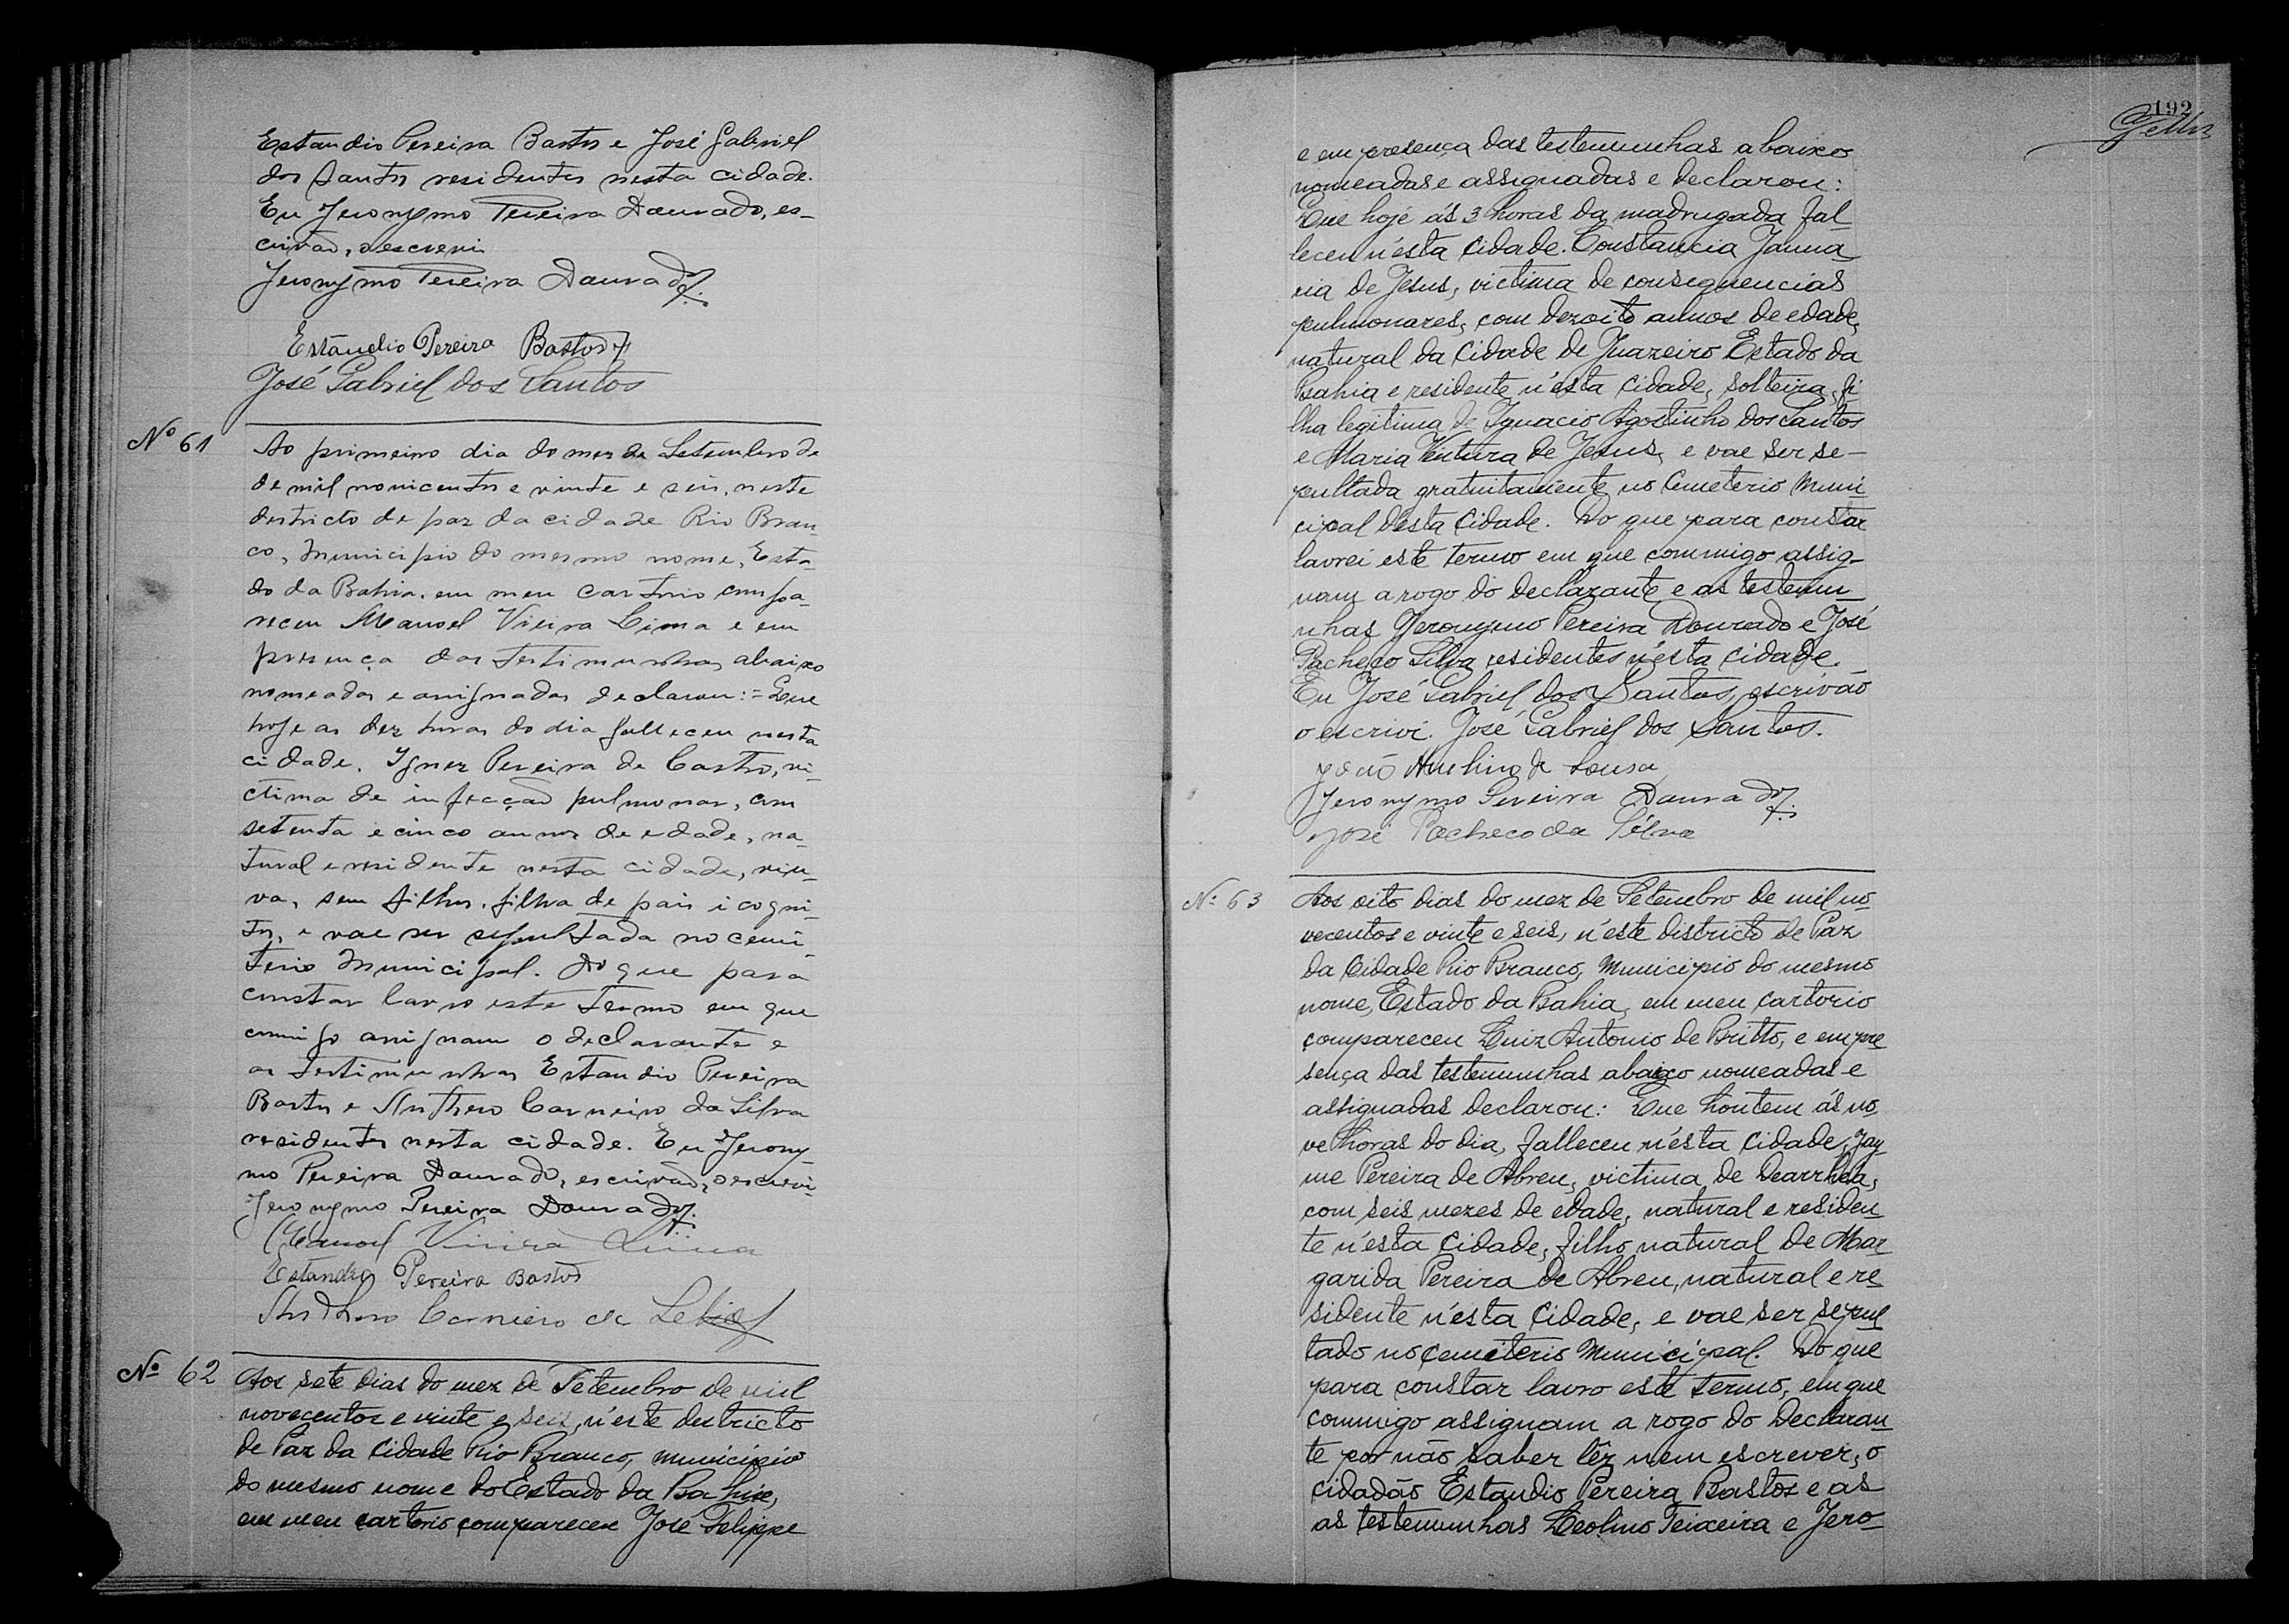 Estandio Pereira Bastos e José Gabriel
dos Santos residentes nesta cidade.
Eu Jeronymo Pereira Dourado, es-
crivão, o escrevi
Jeronymo Pereira Dourado
Estandio Pereira Bastos
José Gabriel dos Santos
Nº 61
Ao primeiro dia do mez de Setembro de
de mil novicentos e vinte e seis, neste
destricto de paz da cidade Rio Bran-
co, Municipio do mesmo nome, Esta-
do da Bahia, em meu cartorio compa-
receu Manoel Vieira Lima e em
presença das testimunhas abaixo
nomeadas e assignadas declarou:= Que
hoje as dez horas do dia falleceu nesta
cidade, Ignez Pereira de Castro, vi-
ctima de infecção pulmonar, com
setenta e cinco annos de edade, na-
tural e residente nesta cidade, viu-
va, sem filhos, filha de pais icogni-
tos, e vae ser sepultada no cemi-
terio Municipal. Do que para
constar lavro este termo em que
comigo assignam o declarante e
as testimunhas Estandio Pereira
Bastos e Anthero Carneiro da Silva
residentes nesta cidade. Eu Jerony-
mo Pereira Dourado, escrivão, o escrevi.
Jeronymo Pereira Dourado
Manoel Vieira Lima
Estandio Pereira Bastos
Anthero Carneiro da
Nº 62
Aos sete dias do mez de Setembro de mil
novecentos e vinte e seis, n'este destricto
de Paz da Cidade Rio Branco, municipio
do mesmo nome do Estado da Bahia,
em meu cartorio compareceu José Felippe
192
e em presença das testemunhas abaixo
nomeadas e assignadas e declarou:
Que hoje ás 3 horas da madrugada fal-
leceu n'esta Cidade. Constancia Janua-
ria de Jesus, victima de consequencias
pulmonares, com dezoito annos de edade,
natural da Cidade de Juazeiro Estado da
Bahia e residente n'esta Cidade, solteira, fi-
lha legitima de Ignacio Agostinho dos Santos
e Maria Ventura de Jesus, e vae ser se-
pultada gratuitamente no Cemeterio Muni-
cipal d'esta Cidade. Do que para constar
lavrei este termo em que commigo assig-
nam a rogo do declarante e as testemu-
nhas Jeronymo Pereira Dourado e José
Pacheco Silva residentes n'esta cidade.
Eu José Gabriel dos Santos, escrivão
o escrivi. José Gabriel dos Santos.
João Avelino de Sousa
Jeronymo Pereira Dourado
José Pacheco da Silva
Nº 63
Aos oito dias do mez de Setembro de mil no-
vecentos e vinte e seis, n'este districto de Paz
da Cidade Rio Branco, Municipio do mesmo
nome, Estado da Bahia, em meu cartorio
compareceu Luiz Antonio de Britto, e em pre-
sença das testemunhas abaixo nomeadas e
assignadas declarou: Que hontem ás no-
ve horas do dia, falleceu n'esta Cidade, Jay-
me Pereira de Abreu, victima de Dearrhea,
com seis mezes de edade, natural e residen-
te n'esta Cidade, filho natural de Mar-
garida Pereira de Abreu, natural e re-
sidente n'esta Cidade, e vae ser sepul-
tado no cemeterio Municipal. Do que
para constar lavro este termo, em que
commigo assignam a rogo do Declaran-
te por não saber lêr nem escrever, o
cidadão Estandio Pereira Bastos e as
as testemunhas Leolino Teixeira e Jero-